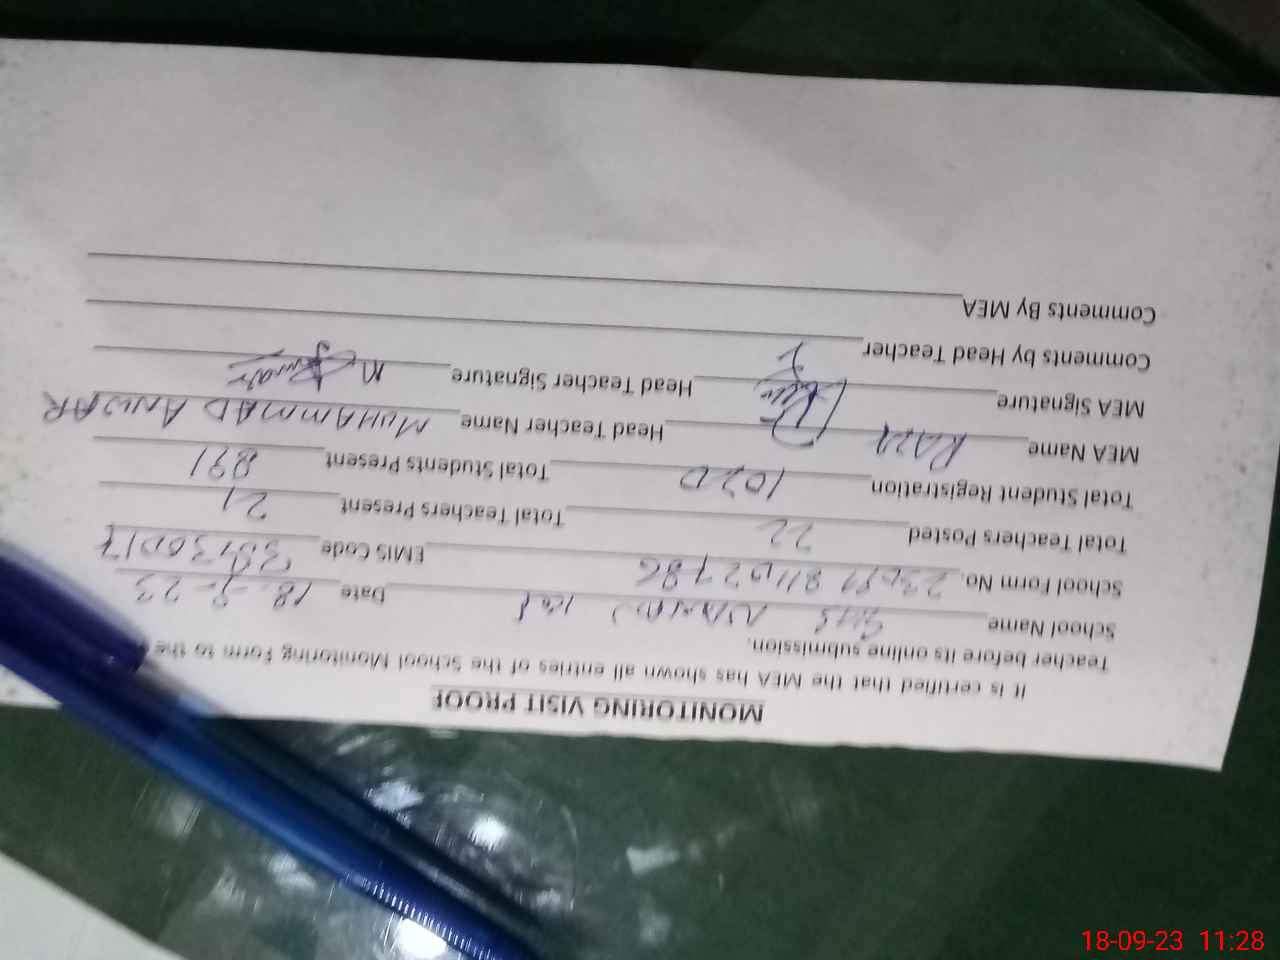 MONITORING VISIT PROOF
It is certified that the MEA has shown all entries of the School Monitoring Form to the
Teacher before its online submission.
School Name Date 18-9-23
School Form No. EMIS Code
Total Teachers Posted 22 Total Teachers Present 21
Total Student Registration 1020 Total Students Present 891
MEA Name Head Teacher Name MUHAMMAD ANWAR
MEA Signature Head Teacher Signature
Comments by Head Teacher
Comments By MEA
18-09-23 11:28